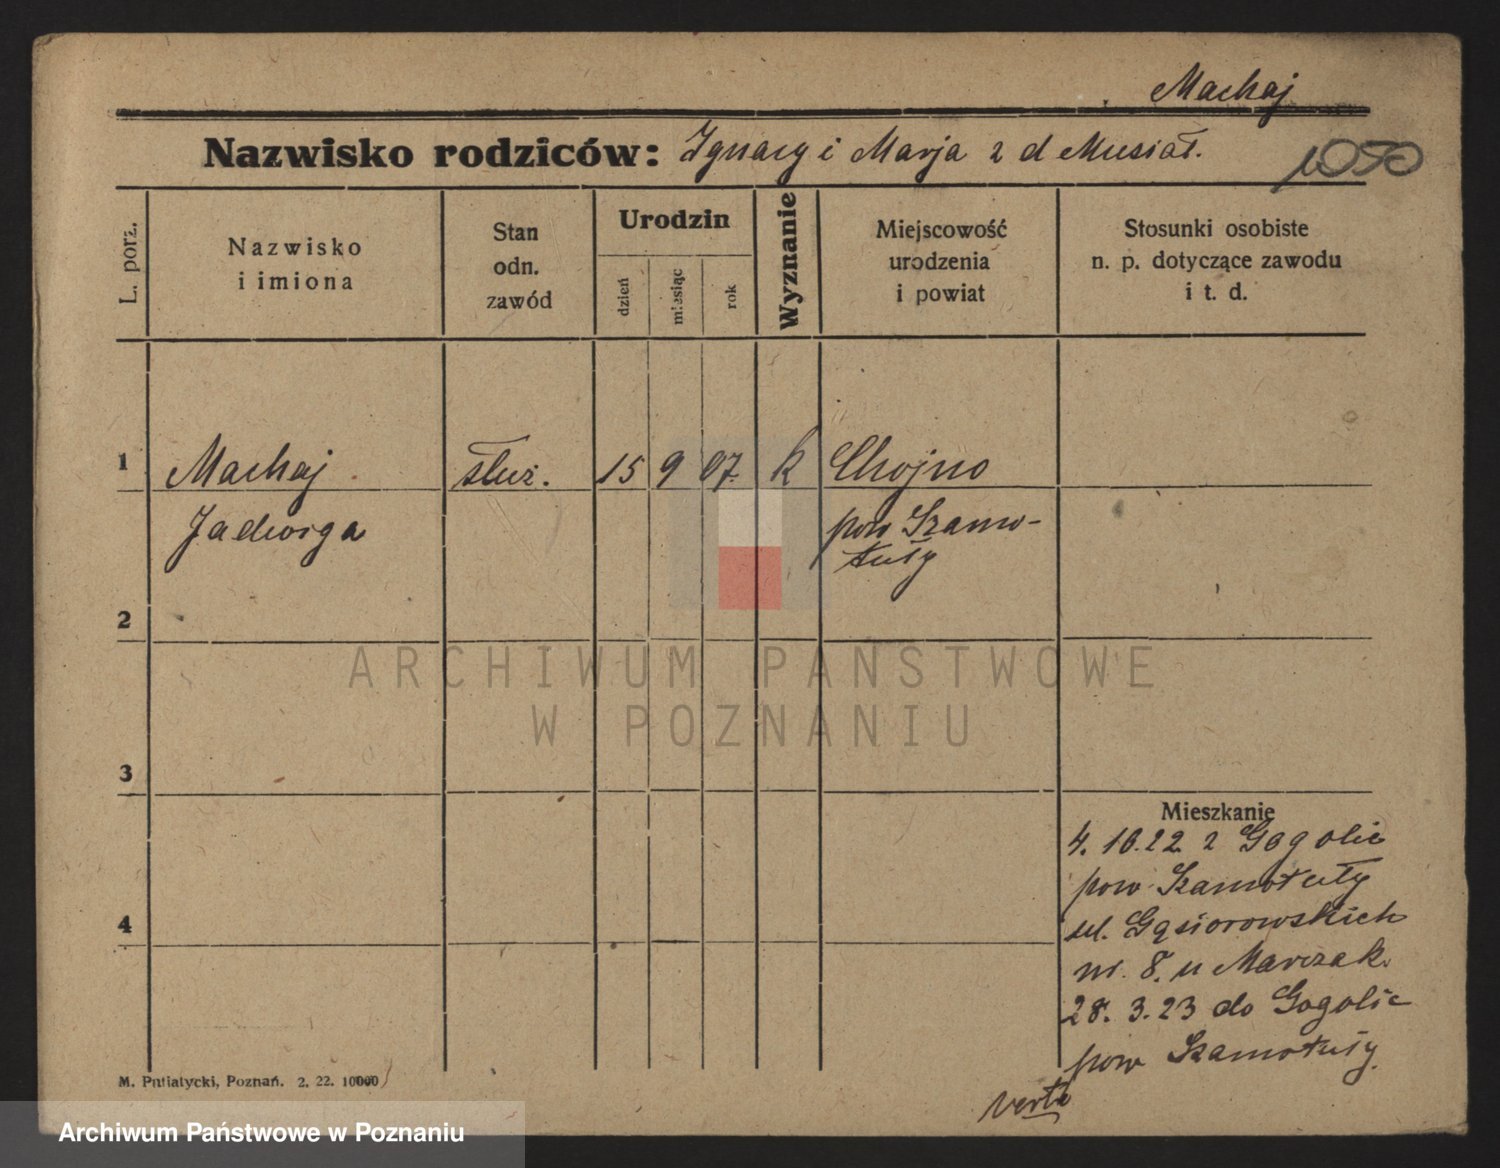 Machaj
Nazwisko rodziców: Ignacy i Marja z d Musiał.
1050
L. porz.
Nazwisko
i imiona
Stan
odn.
zawód
Urodzin
dzień
miesiąc
rok
Wyznanie
Miejscowość
urodzenia
i powiat
Stosunki osobiste
n. p. dotyczące zawodu
i t. d.
1 Machaj służ. 15 9 07. k Chojno
Jadwiga pow Szamo-
tuły
2
ARCHIWUM PAŃSTWOWE
W POZNANIU
3
Mieszkanie
4. 10. 22 z Gogolic
pow Szamotuły
ul. Gąsiorowskich
4
nr. 8. u Marczak.
28. 3. 23 do Gogolic
pow Szamotuły.
verte
M. Putiatycki, Poznań. 2. 22. 10000
Archiwum Państwowe w Poznaniu